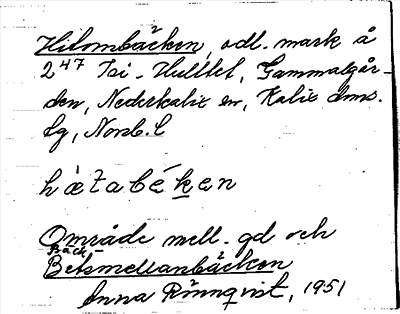 Hitombäcken, odl. mark å
2⁴⁷ Isi-Hulltet, Gammalgår-
den, Nederkalix sn, Kalix dms.
lg, Norrb. l
hètabéken
Område mell. gd och
Bäck-
Betsmellanbäcken
Anna Rönnqvist, 1951